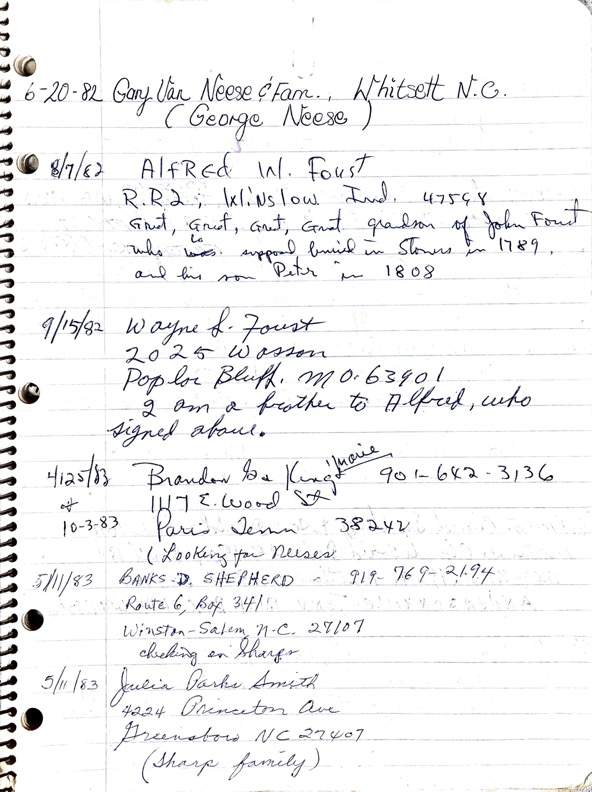 6-20-82 Gary Van Neese & Fam., Whitsett N.C.
(George Neese)
8/7/82 Alfred W. Foust
R.R.2; Winslow Ind. 47598
Grat, Grat, Grat, Grat grandson of John Foust
who is suppose buried in Stoners in 1789.
and his son Peter in 1808
9/15/82 Wayne L. Foust
2025 Wasson
Poplar Bluff. MO. 63901
I am a brother to Alfred, who
signed above.
4/25/83 Brandon King Marie 901-642-3136
1117 E. Wood St
10-3-83 Paris. Tenn 38242
(Looking for Neeses
5/11/83 BANKS D. SHEPHERD - 919-769-2194
Route 6, Box 341
Winston-Salem, N.C. 27107
checking on Sharps
5/11/83 Julia Parks Smith
4224 Princeton Ave
Greensboro NC 27407
(Sharp family)